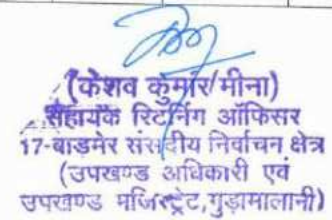 (केशव कुमार मीना)
सहायक रिटर्निग ऑफिसर
17-बाडमेर संसदीय निर्वाचन क्षेत्र
(उपखण्ड अधिकारी एवं
उपखण्ड मजिस्ट्रेट,गुड़ामालानी)